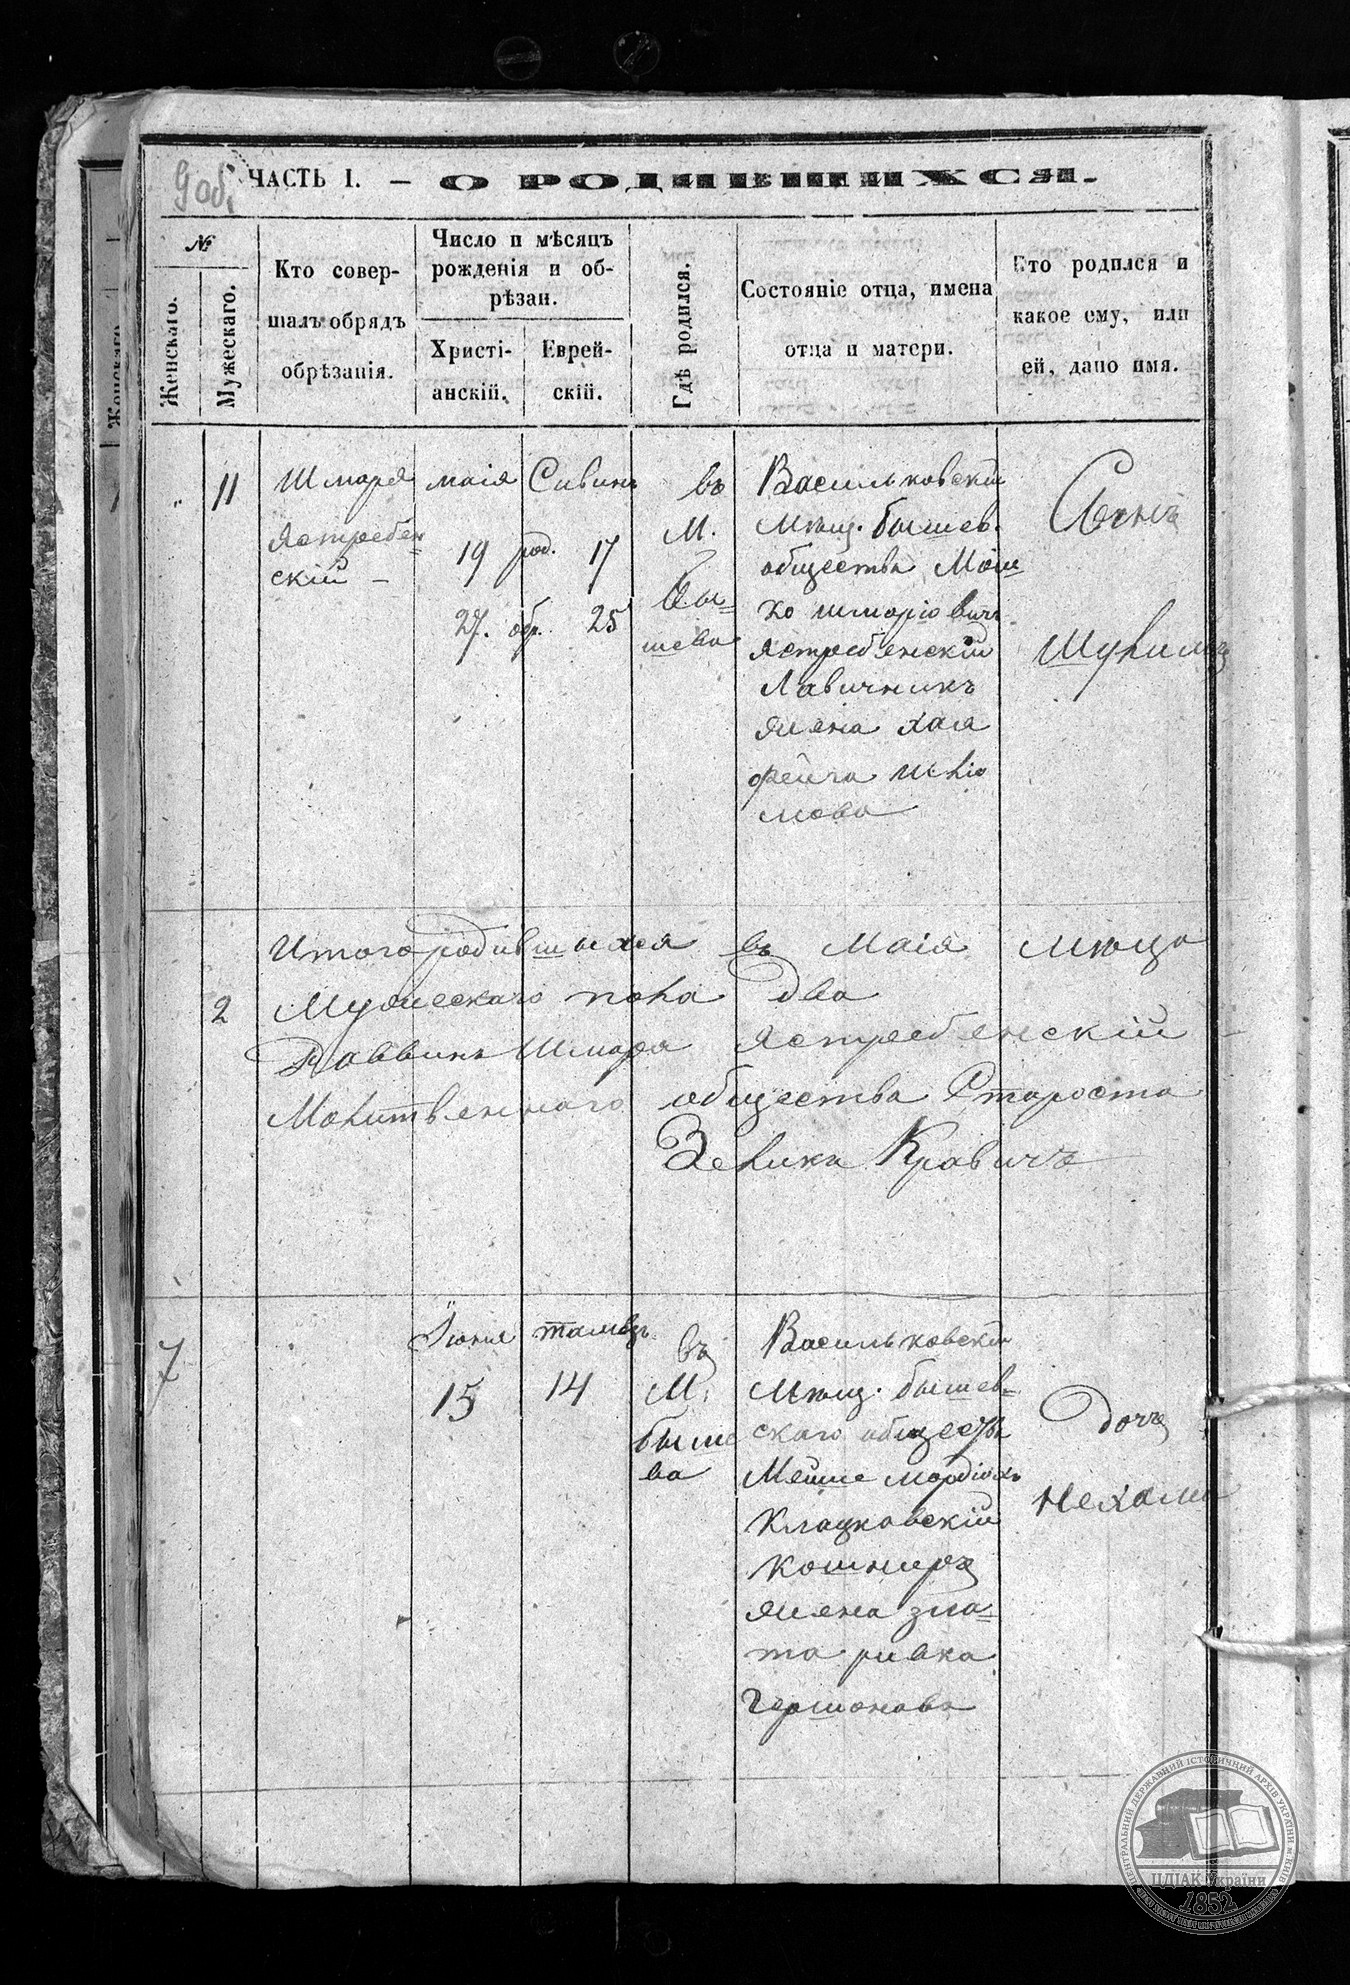 9 об.
ЧАСТЬ I. — О РОДИВШИХСЯ.
№
Женскаго.
Мужескаго.
Кто совер-
шалъ обрядъ
обрѣзанія.
Число и мѣсяцъ
рожденія и об-
рѣзан.
Христі-
анскій.
Еврей-
скій.
Гдѣ родился.
Состояніе отца, имена
отца и матери.
Кто родился и
какое ему, или
ей, дано имя.
" 11
Шмаря
Ястребен
скій —
маія
19 род.
27. обр.
Сивинъ
17
25
въ
М.
Бы-
шева
Васильковскій
Мѣщ. бышев.
общества Мош
ко Шмаріовичъ
Ястребенскій
Лавичникъ
жена Хая
Фейга
мова
Сынъ
Итого родившихся въ Маія мѣсцо
2 Мужескаго пола два
Раввинъ Шмаря Ястребенскій
Молитвеннаго общества Староста
Зелика Кравичъ
7
Іюня
15
тамвзъ
14
въ
М.
быше
ва
Васильковскій
Мѣщ. бышев-
скаго обществ
Мейше Мордіохъ
Клацковскій
Кошниръ
жена зла-
та ривка
Гершонова
дочъ
Нехама
ЦЕНТРАЛЬНИЙ ДЕРЖАВНИЙ ІСТОРИЧНИЙ АРХІВ УКРАЇНИ М. КИЇВ
ЦДІАК України
1852